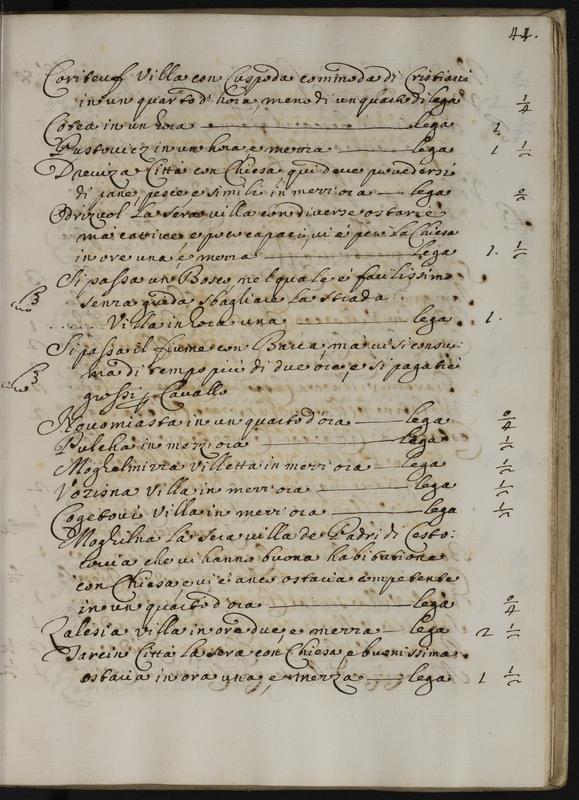 44.
Coriteuf Villa con Cuspoda commoda di Cristiani
in un quarto d'hora, meno di un quarto di lega 1/4
Cotea in un hora lega 1.
Gustoviez in un hora e mezza lega 1 1/2
Drewiza Città con Chiesa qui deve provedersi
di pane, pesce e simili in mezz'ora lega
Odrizvol la sera villa con diverse ostarie
mà cattive e poco capaci, vi è però la Chiesa
in ore una, e mezza lega 1. 1/2
Si passa un Bosco nel quale è facilissimo
senza guida sbagliare la strada
..... Villa in hora una lega 1.
Si passa il fiume con Barca, mà vi si consu:
ma di tempo più di due ore, e si paga
grossi Cavallo
Novomiasta in un quarto d'ora lega 0/4
Pulcha in mezz'ora lega 1/2
Moghelmizza villetta in mezz'ora lega 1/2
Voziona Villa in mezz'ora lega 1/2
Cogetovi villa in mezz'ora lega 1/2
Moghilna la sera villa de Padri di Cesto:
covia che vi hanno buona habitatione
con Chiesa e vi è anco ostaria competente
in un quarto d'ora lega 0/4
Zalesia villa in ore due, e mezza lega 2 1/2
Tarcin Città la sera con Chiesa e buonissima
ostaria in ora una, e mezza lega 1 1/2